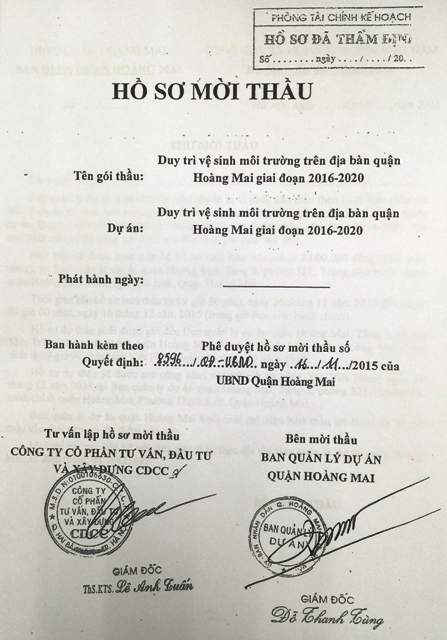 PHÒNG TÀI CHÍNH KẾ HOẠCH
HỒ SƠ ĐÃ THẨM ĐỊNH
Số ........ ngày ..../..../20..
HỒ SƠ MỜI THẦU
Tên gói thầu: Duy trì vệ sinh môi trường trên địa bàn quận
Hoàng Mai giai đoạn 2016-2020
Dự án: Duy trì vệ sinh môi trường trên địa bàn quận
Hoàng Mai giai đoạn 2016-2020
Phát hành ngày:
Ban hành kèm theo Phê duyệt hồ sơ mời thầu số
Quyết định: 8596/QĐ-UBND ngày 16/11/2015 của
UBND Quận Hoàng Mai
Tư vấn lập hồ sơ mời thầu
CÔNG TY CỔ PHẦN TƯ VẤN, ĐẦU TƯ
VÀ XÂY DỰNG CDCC
CÔNG TY
CỔ PHẦN
TƯ VẤN, ĐẦU TƯ
VÀ XÂY DỰNG
CDCC
GIÁM ĐỐC
ThS.KTS. Lê Anh Tuấn
Bên mời thầu
BAN QUẢN LÝ DỰ ÁN
QUẬN HOÀNG MAI
BAN QUẢN LÝ
DỰ ÁN
GIÁM ĐỐC
Đỗ Thanh Tùng